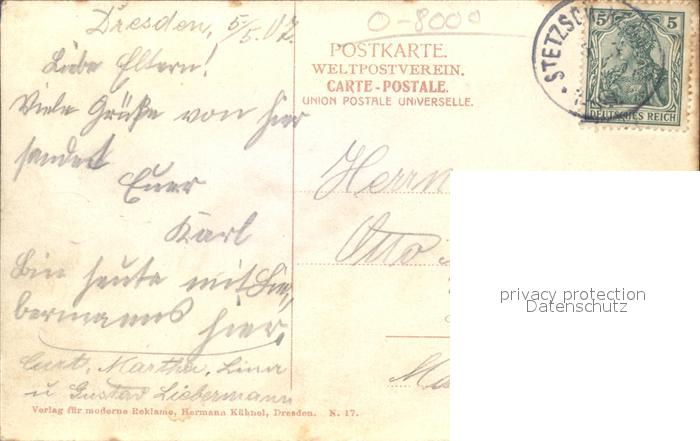 Dresden, 5/5.07.
Liebe Eltern!
Viele Grüße von hier
sendet
Euer
Karl
Bin heute mit Lie-
bermanns hier.
Curt, Martha, Lina
u Gustav Liebermann
Verlag für moderne Reklame, Hermann Kühnel, Dresden. N. 17.
O-8000
POSTKARTE.
WELTPOSTVEREIN.
CARTE-POSTALE.
UNION POSTALE UNIVERSELLE.
STETZSCH
5 5
DEUTSCHES REICH
Herrn
Otto
privacy protection
Datenschutz